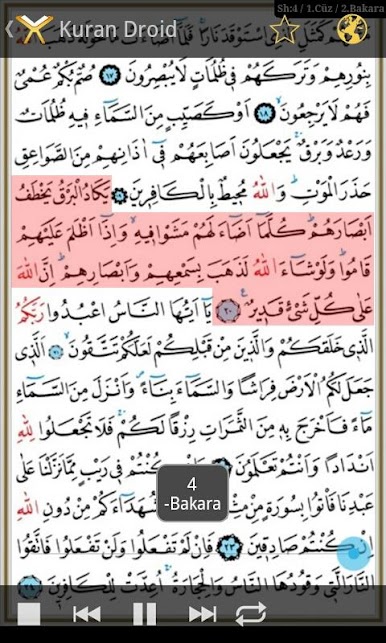 Kuran Droid
Sh:4 / 1.Cüz / 2.Bakara
بِنُورِهِمْ وَتَرَكَهُمْ فِى ظُلُمَاتٍ لَا يُبْصِرُونَ ﴿١٧﴾ صُمٌّ بُكْمٌ عُمْىٌ
فَهُمْ لَا يَرْجِعُونَ ﴿١٨﴾ اَوْ كَصَيِّبٍ مِنَ السَّمَاءِ فِيهِ ظُلُمَاتٌ
وَرَعْدٌ وَبَرْقٌ يَجْعَلُونَ اَصَابِعَهُمْ فِى اٰذَانِهِمْ مِنَ الصَّوَاعِقِ
حَذَرَ الْمَوْتِ وَاللّٰهُ مُحِيطٌ بِالْكَافِرِينَ ﴿١٩﴾ يَكَادُ الْبَرْقُ يَخْطَفُ
اَبْصَارَهُمْ كُلَّمَا اَضَاءَ لَهُمْ مَشَوْا فِيهِ وَاِذَا اَظْلَمَ عَلَيْهِمْ
قَامُوا وَلَوْ شَاءَ اللّٰهُ لَذَهَبَ بِسَمْعِهِمْ وَاَبْصَارِهِمْ اِنَّ اللّٰهَ
عَلٰى كُلِّ شَىْءٍ قَدِيرٌ ﴿٢٠﴾ يَا اَيُّهَا النَّاسُ اعْبُدُوا رَبَّكُمُ
الَّذِى خَلَقَكُمْ وَالَّذِينَ مِنْ قَبْلِكُمْ لَعَلَّكُمْ تَتَّقُونَ ﴿٢١﴾ اَلَّذِى
جَعَلَ لَكُمُ الْاَرْضَ فِرَاشًا وَالسَّمَاءَ بِنَاءً وَاَنْزَلَ مِنَ السَّمَاءِ
مَاءً فَاَخْرَجَ بِهِ مِنَ الثَّمَرَاتِ رِزْقًا لَكُمْ فَلَا تَجْعَلُوا لِلّٰهِ
اَنْدَادًا وَاَنْتُمْ تَعْلَمُونَ كُنْتُمْ فِى رَيْبٍ مِمَّا نَزَّلْنَا عَلٰى
عَبْدِنَا فَاْتُوا بِسُورَةٍ مِنْ شُهَدَاءَكُمْ مِنْ دُونِ اللّٰهِ
كُنْتُمْ صَادِقِينَ ﴿٢٣﴾ فَاِنْ لَمْ تَفْعَلُوا وَلَنْ تَفْعَلُوا فَاتَّقُوا
النَّارَ الَّتِى وَقُودُهَا النَّاسُ وَالْحِجَارَةُ اُعِدَّتْ لِلْكَافِرِينَ
4
-Bakara